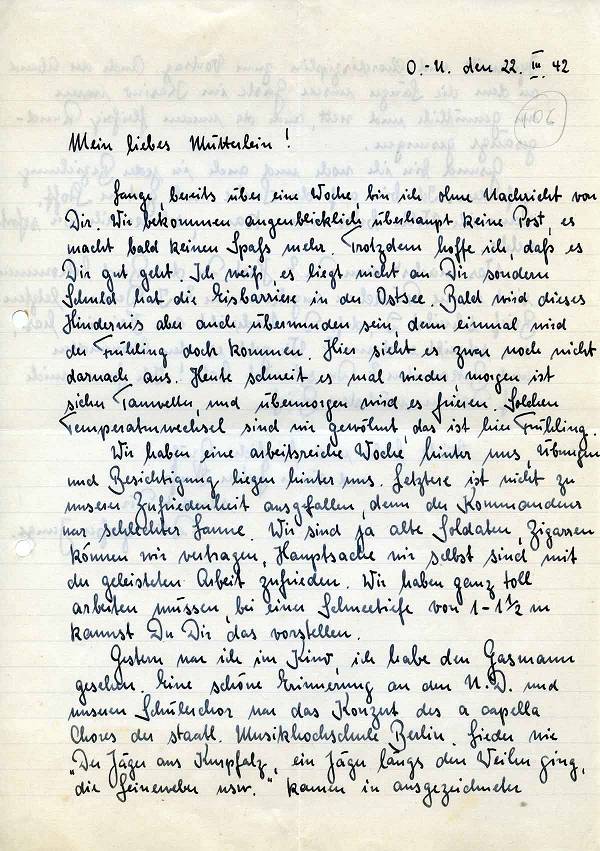 O.-U. den 22. III. 42
Mein liebes Mütterlein!
Lange, bereits über eine Woche, bin ich ohne Nachricht von
Dir. Wir bekommen augenblicklich überhaupt keine Post, es
macht bald keinen Spaß mehr. Trotzdem hoffe ich, daß es
Dir gut geht. Ich weiß, es liegt nicht an Dir sondern
Schuld hat die Eisbarriere in der Ostsee. Bald wird dieses
Hindernis aber auch überwunden sein, denn einmal wird
der Frühling doch kommen. Hier sieht es zwar noch nicht
darnach aus. Heute schneit es mal wieder, morgen ist
sicher Tauwetter, und übermorgen wird es frieren. Solchen
Temperaturwechsel sind wir gewöhnt, das ist hier Frühling.
Wir haben eine arbeitsreiche Woche hinter uns, Übungen
und Besichtigung liegen hinter uns. Letztere ist nicht zu
unserer Zufriedenheit ausgefallen, denn der Kommandeur
war schlechter Laune. Wir sind ja alte Soldaten, Zigarren
können wir vertragen, Hauptsache wir selbst sind mit
der geleisteten Arbeit zufrieden. Wir haben ganz toll
arbeiten müssen, bei einer Schneetiefe von 1-1½ m
kannst Du Dir das vorstellen.
Gestern war ich im Kino, ich habe den Gasmann
gesehen. Eine schöne Erinnerung an den N.D. und
unseren Schülerchor war das Konzert des a capella
Chores der staatl. Musikhochschule Berlin. Lieder wie
"Der Jäger aus Kurpfalz, ein Jäger längs dem Weiher ging,
die Leineweber usw." kamen in ausgezeichneter